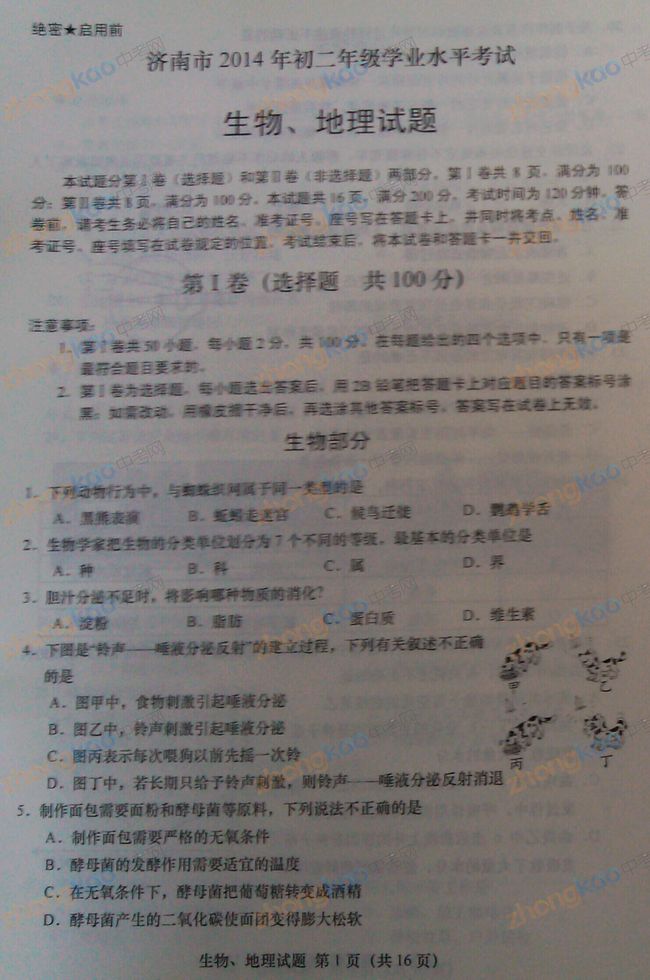 绝密★启用前
济南市 2014 年初二年级学业水平考试
生物、地理试题
本试题分第Ⅰ卷（选择题）和第Ⅱ卷（非选择题）两部分。第Ⅰ卷共 8 页，满分为 100
分；第Ⅱ卷共 8 页，满分为 100 分。本试题共 16 页，满分 200 分，考试时间为 120 分钟。答
卷前，请考生务必将自己的姓名、准考证号、座号写在答题卡上，并同时将考点、姓名、准
考证号、座号填写在试卷规定的位置。考试结束后，将本试卷和答题卡一并交回。
第Ⅰ卷（选择题 共 100 分）
注意事项：
1．第Ⅰ卷共 50 小题，每小题 2 分，共 100 分。在每题给出的四个选项中，只有一项是
最符合题目要求的。
2．第Ⅰ卷为选择题，每小题选出答案后，用 2B 铅笔把答题卡上对应题目的答案标号涂
黑；如需改动，用橡皮擦干净后，再选涂其他答案标号。答案写在试卷上无效。
生物部分
1．下列动物行为中，与蜘蛛织网属于同一类型的是
A．黑熊表演 B．蚯蚓走迷宫 C．候鸟迁徙 D．鹦鹉学舌
2．生物学家把生物的分类单位划分为 7 个不同的等级，最基本的分类单位是
A．种 B．科 C．属 D．界
3．胆汁分泌不足时，将影响哪种物质的消化？
A．淀粉 B．脂肪 C．蛋白质 D．维生素
4．下图是“铃声——唾液分泌反射”的建立过程，下列有关叙述不正确
的是
A．图甲中，食物刺激引起唾液分泌
B．图乙中，铃声刺激引起唾液分泌
C．图丙表示每次喂狗以前先摇一次铃
D．图丁中，若长期只给予铃声刺激，则铃声——唾液分泌反射消退
甲 乙
丙 丁
5．制作面包需要面粉和酵母菌等原料，下列说法不正确的是
A．制作面包需要严格的无氧条件
B．酵母菌的发酵作用需要适宜的温度
C．在无氧条件下，酵母菌把葡萄糖转变成酒精
D．酵母菌产生的二氧化碳使面团变得膨大松软
生物、地理试题 第 1 页（共 16 页）
zhongkao中考网